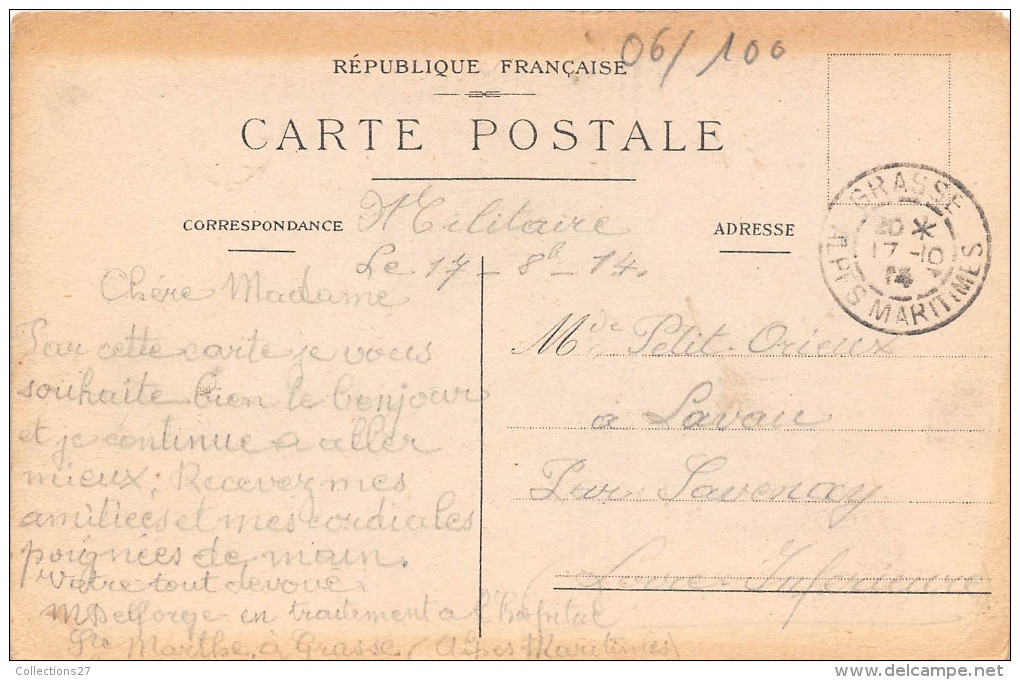 06/100
RÉPUBLIQUE FRANÇAISE
CARTE POSTALE
CORRESPONDANCE
Militaire
ADRESSE
GRASSE
20 *
17 -10
14
ALPES MARITIMES
Le 17 - 8b - 14.
Chère Madame
Par cette carte je vous
souhaite bien le bonjour
et je continue a aller
mieux; Recevez mes
amitiées et mes cordiales
poignées de main.
Votre tout devoué
M Delforge en traitement a l'hopital
Ste Marthe, à Grasse, (Alpes Maritimes)
Mde Petit-Orieux
à Lavau
Par Savenay
Loire-Inferieure
Collections27
delcampe.net